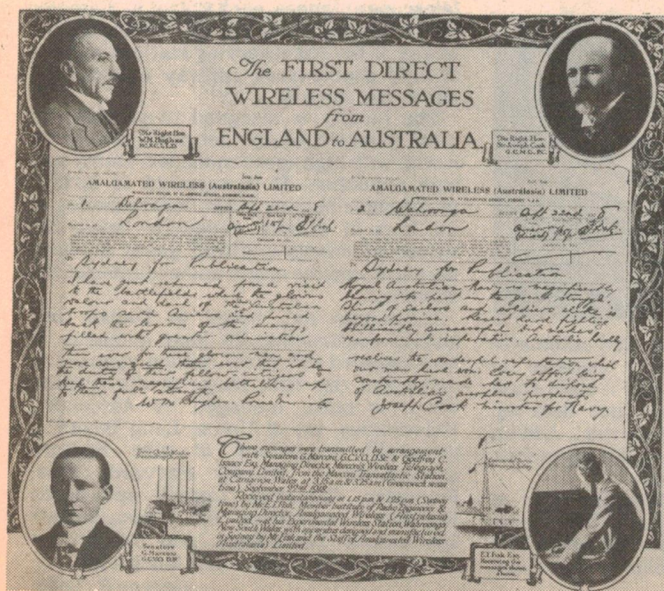 The FIRST DIRECT
WIRELESS MESSAGES
from
ENGLAND to AUSTRALIA
The Right Hon.
W.M. Hughes
The Right Hon.
Sir Joseph Cook
G.C.M.G., P.C.
AMALGAMATED WIRELESS (Australasia) LIMITED
1.
Sept 22nd
London
Sydney for Publication
I have just returned from a visit
to the battlefields where the glorious
valour and dash of the Australian
troops saved Amiens and forced
back the legions of the enemy,
filled with greater admiration
than ever for these glorious men and
more convinced than ever that it is
the duty of their fellow-citizens to
keep these magnificent battalions up
to their full strength.
W M Hughes. Prime Minister
AMALGAMATED WIRELESS (Australasia) LIMITED
2. Wahroonga
Sept 22nd
Sydney for Publication
Royal Australian Navy is magnificently
bearing its part in the great struggle.
Spirit of sailors and soldiers alike is
beyond praise. Recent hard fighting
brilliantly successful but makes
reinforcements imperative. Australia hardly
realises the wonderful reputation which
our men have won. Every effort being
constantly made here to dispose
of Australia's surplus products.
Joseph Cook Minister for Navy.
These messages were transmitted by arrangement
with Senatore G. Marconi, G.C.V.O., D.Sc. & Godfrey C.
Isaacs Esq. Managing Director, Marconi's Wireless Telegraph
Company Limited, from the Marconi Transatlantic Station,
at Carnarvon, Wales, at 3.15 a.m. & 3.25 a.m.
September 22nd, 1918.
Received instantaneously at 1.15 p.m. & 1.25 p.m. (Sydney
time) by Mr. E.T. Fisk, Member Institute of Radio Engineers &
of Amalgamated Wireless of Australasia
Limited, at his Experimental Wireless Station, Wahroonga
designed and manufactured
in Sydney by Mr. Fisk and the Staff of Amalgamated Wireless
(Australasia) Limited
Senatore
G. Marconi
G.C.V.O. D.Sc.
E.T. Fisk Esq.
Receiving the
messages